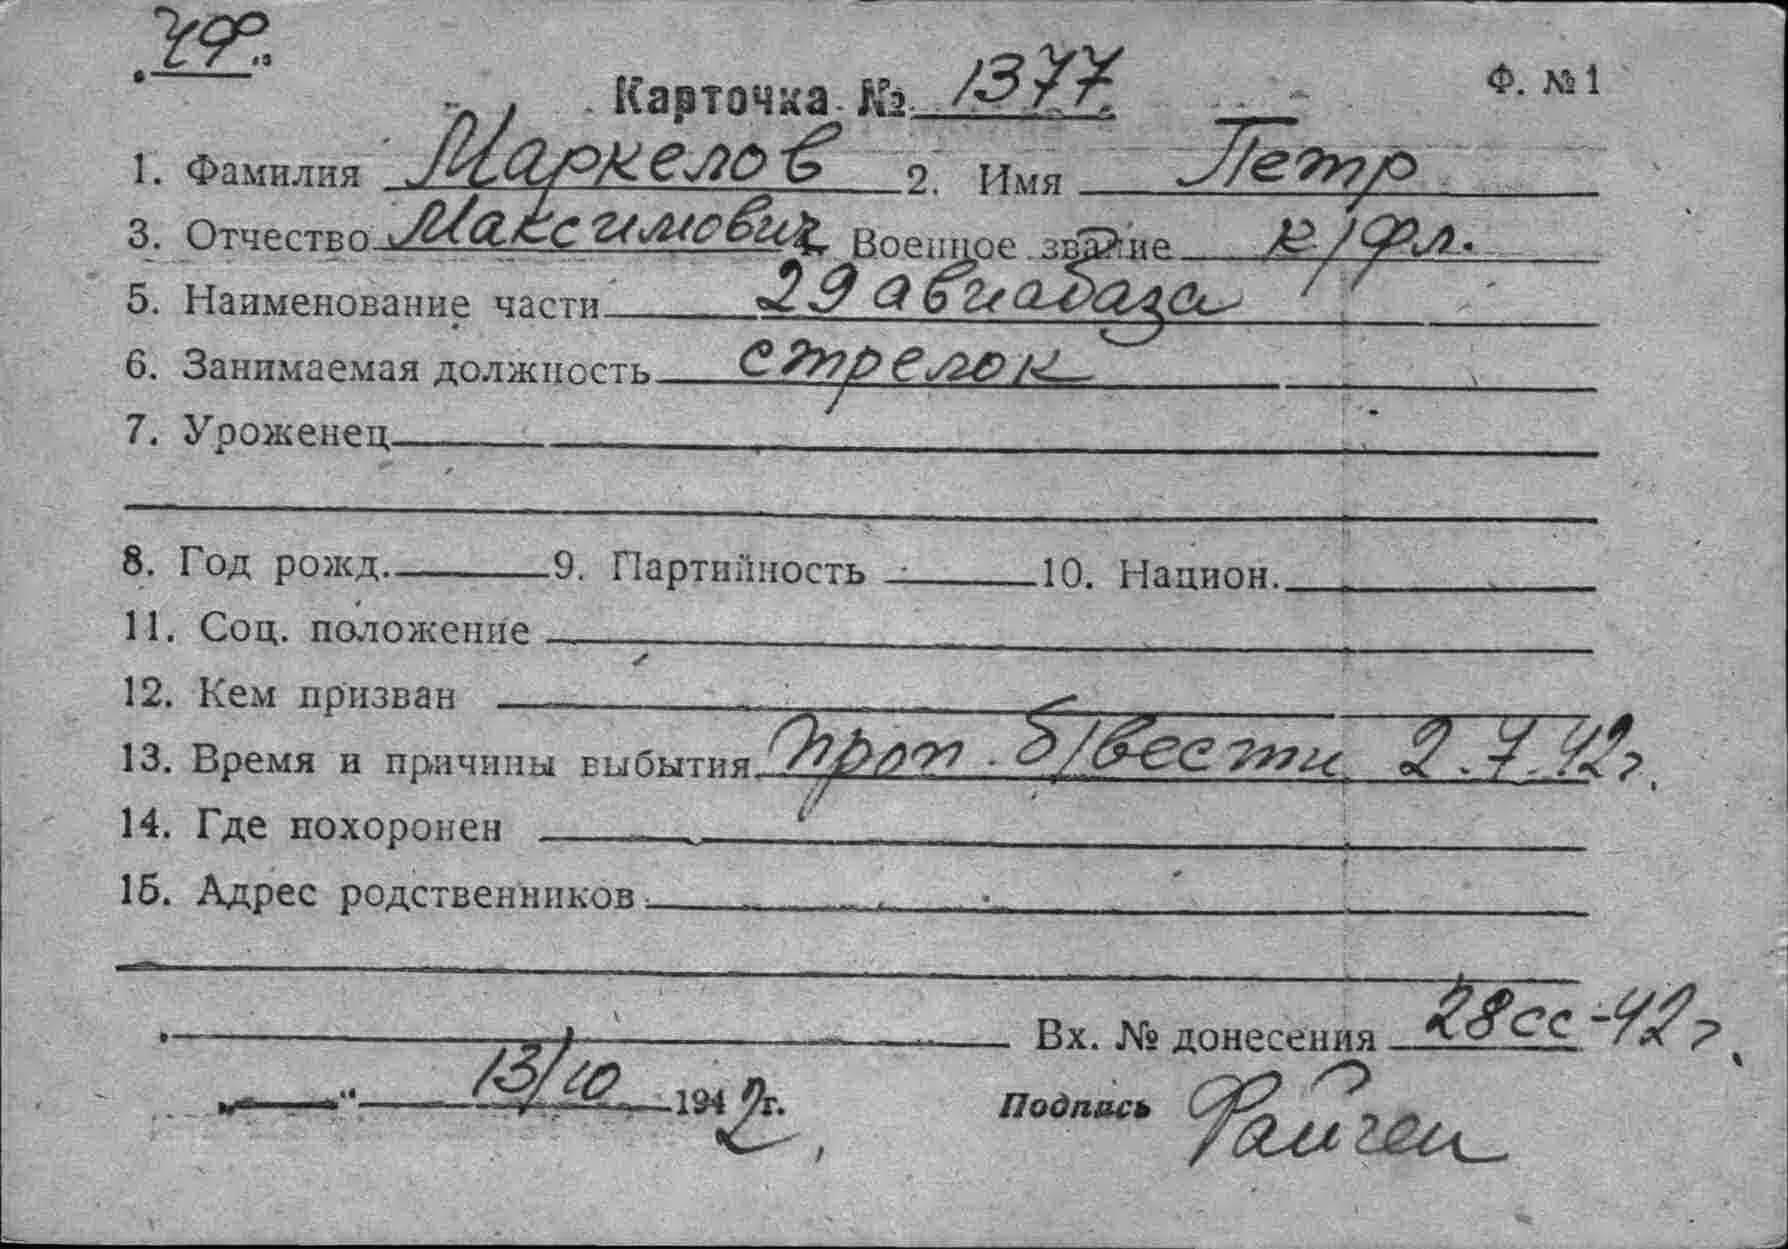 ЧФ.
Карточка № 1377. Ф. № 1
1. Фамилия Маркелов 2. Имя Петр
3. Отчество Максимович Военное звание к/фл.
5. Наименование части 29 авиабаза
6. Занимаемая должность стрелок
7. Уроженец
8. Год рожд. 9. Партийность 10. Национ.
11. Соц. положение
12. Кем призван
13. Время и причины выбытия проп. б/вести 2.7.42г.
14. Где похоронен
15. Адрес родственников
Вх. № донесения 28сс-42г.
„ “ 13/10 1942г. Подпись